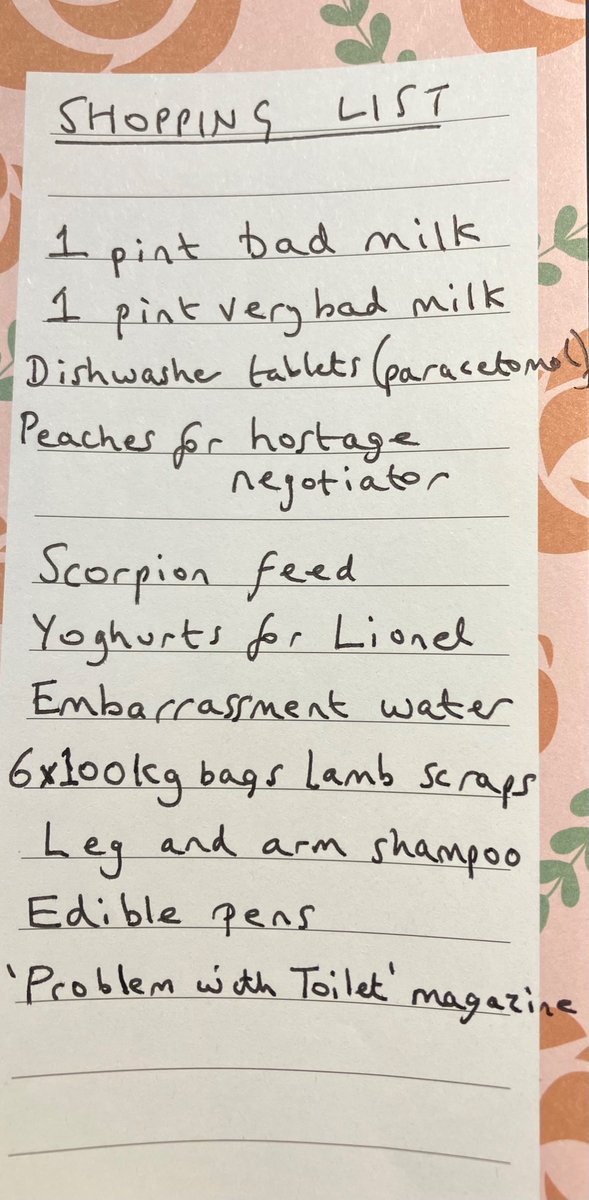 SHOPPING LIST
1 pint bad milk
1 pint very bad milk
Dishwasher tablets (paracetomol)
Peaches for hostage
negotiator
Scorpion feed
Yoghurts for Lionel
Embarrassment water
6x100kg bags lamb scraps
Leg and arm shampoo
Edible pens
'Problem with Toilet' magazine